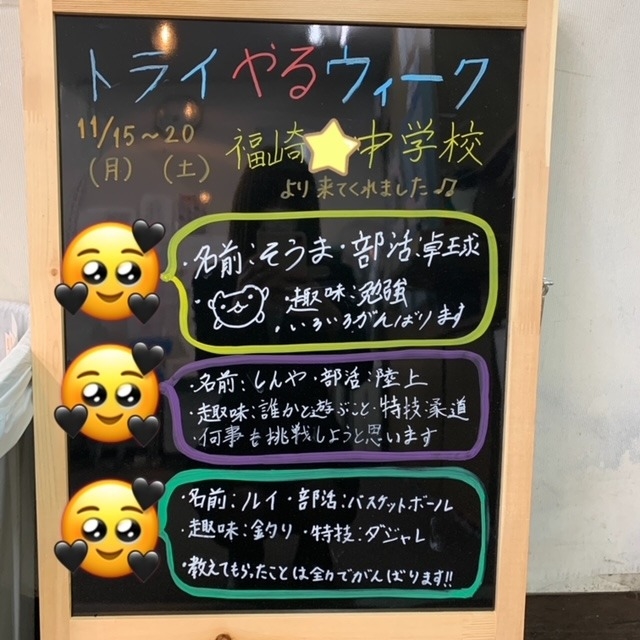 トライやるウィーク
11/15～20
(月) (土)
福崎 中学校
より来てくれました♫
・名前:そうま・部活:卓球
・趣味:勉強
・いろいろがんばります
・名前:しんや・部活:陸上
・趣味:誰かと遊ぶこと・特技:柔道
・何事も挑戦しようと思います
・名前:ルイ・部活:バスケットボール
・趣味:釣り・特技:ダジャレ
・教えてもらったことは全力でがんばります!!